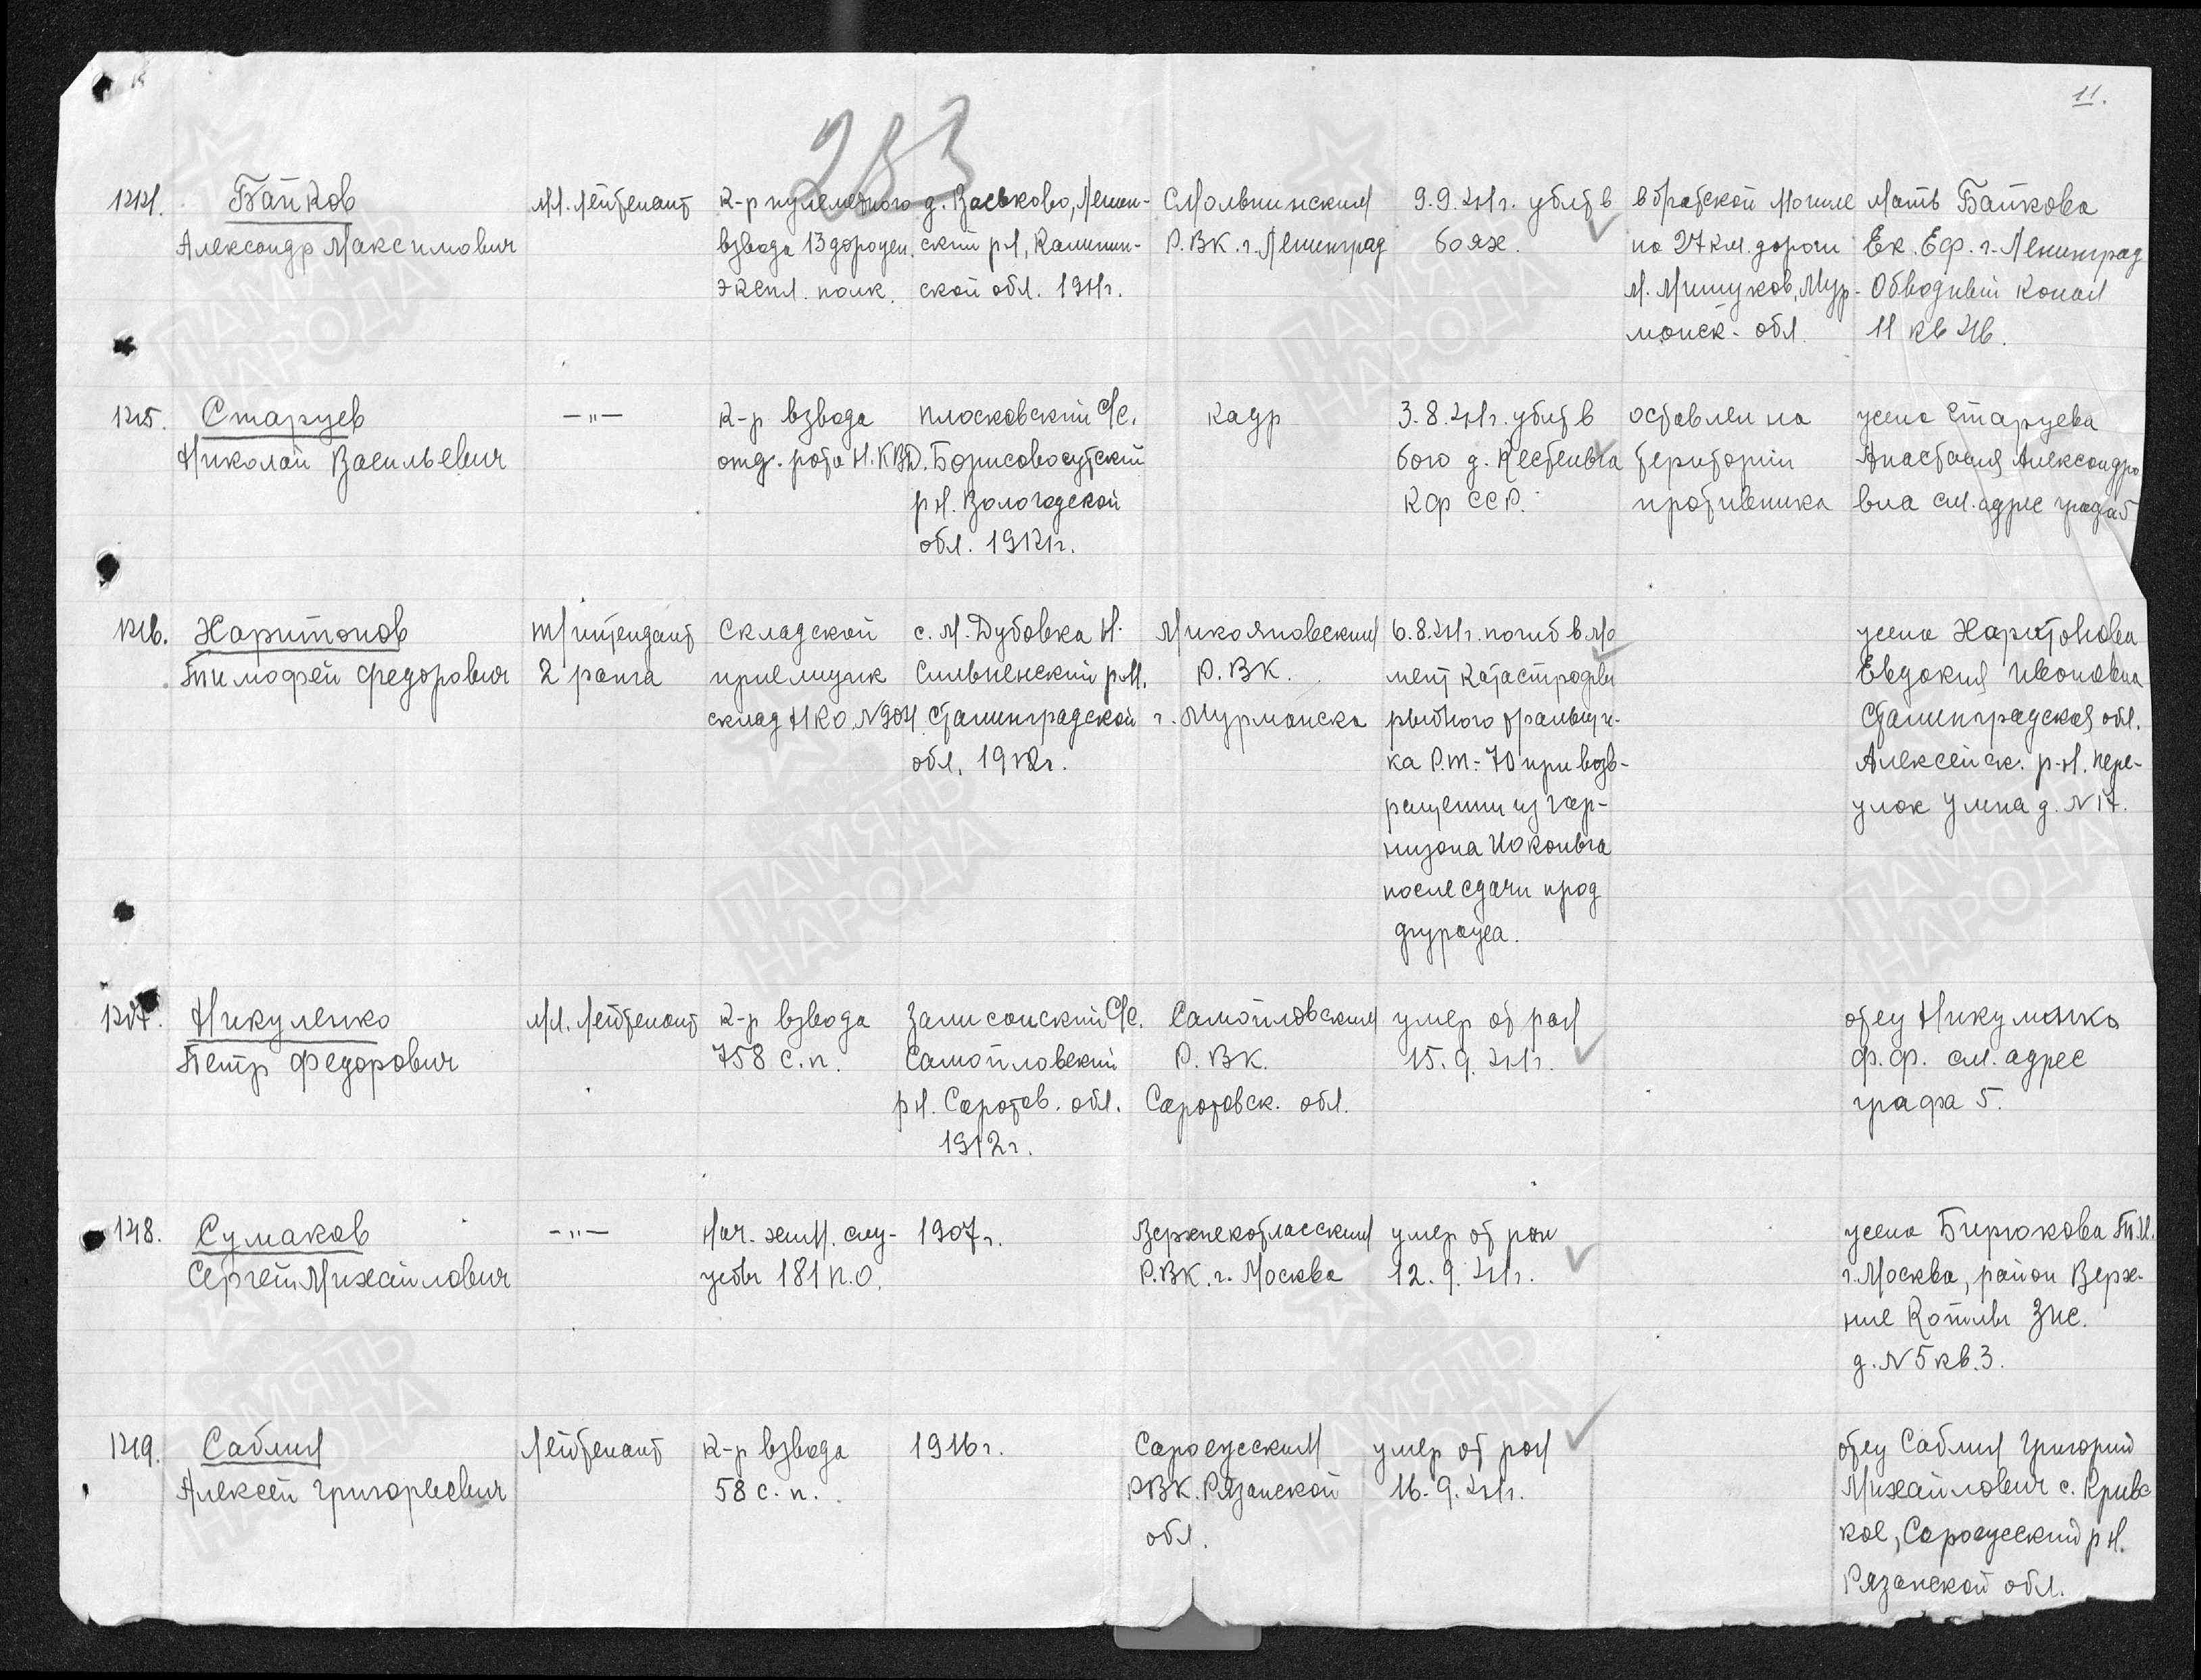 11.
283
124. Байков Александр Максимович
Мл. Лейтенант
К-р пулеметного
взвода 13 дорожн.
экспл. полк.
д. Васьково, Ленин-
ский р-н, Калинин-
ской обл. 1911г.
Смольнинским
Р.ВК. г. Ленинград
9.9.41г. убит в
боях.
в братской могиле
на 27 км. дороги
М. Мишуков, Мур-
манск. обл.
Мать Байкова
Ек. Еф. г. Ленинград
Обводный Канал
11 кв 46.
125. Старцев
Николай Васильевич
—"—
К-р взвода
отд. рота Н.КВД.
Плосковский с/с.
Борисовосудский
р-н. Вологодской
обл. 1912г.
кадр
3.8.41г. убит в
бою д. Кестеньга
КФ ССР.
оставлен на
територии
противника
жена Старцева
Анастасия Александро
вна см. адрес графа 5
126. Харитонов
Тимофей Федорович
т/интендант
2 ранга
Складской
приемщик
склад НКО №904
с. М. Дубовка Н.
Сталинградской
обл. 1912г.
Микояновским
Р.ВК.
г. Мурманска
6.8.41г. погиб в мо
мент катастрофы
рыбного тральщи-
ка Р.Т.-70 при возв-
ращении из гар-
низона Иоканьга
после сдачи прод
фуража.
жена Харитонова
Евдокия Ивановна
Сталинградская обл.
Алексейск. р-н. пере-
улок д. №17.
127. Никуленко
Петр Федорович
Мл. Лейтенант
К-р взвода
758 с.п.
с/с.
Самойловский
р-н. Саратов. обл.
1912г.
Самойловским
Р.ВК.
Саратовск. обл.
умер от ран
15.9.41г.
отец Никуленко
Ф.Ф. см. адрес
графа 5.
128. Сумаков
Сергей Михайлович
—"—
Нач. хим. слу-
жбы 181 п.о.
1907г.
Верхнекотласским
Р.ВК. г. Москва
умер от ран
12.9.41г.
жена Бирюкова Т.И.
г. Москва, район Верх-
ние Котлы ЗИС.
д. №5 кв. 3.
129. Саблин
Алексей Григорьевич
Лейтенант
К-р взвода
58 с.п.
1916г.
РВК. Рязанской
обл.
умер от ран
16.9.41г.
отец Саблин Григорий
Михайлович с. Кривс
кое, р-н.
Рязанской обл.
ПАМЯТЬ НАРОДА